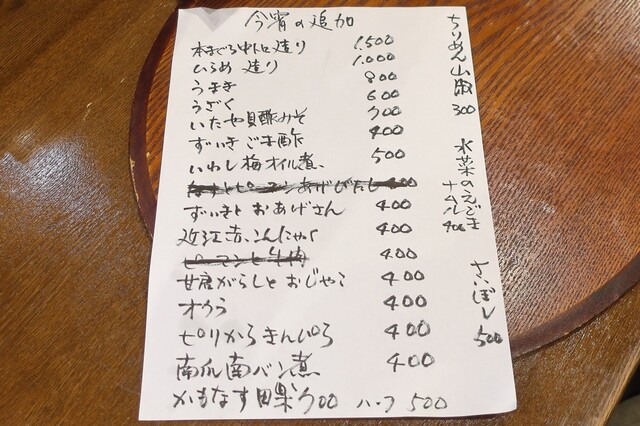 今宵の追加
本まぐろ中トロ造り 1,500
ひらめ 造り 1,000
うまき 800
うざく 600
いたや貝酢みそ 700
ずいき ごま酢 400
いわし梅オイル煮 500
なすとピーマンあげびたし 400
ずいきと おあげさん 400
近江赤こんにゃく 400
ピーマンと牛肉 400
甘唐がらしと おじゃこ 400
オクラ 400
ピリからきんぴら 400
南瓜南バン煮 400
かもなす田楽 700 ハーフ 500
ちりめん山椒 300
水菜のえごまナムル 400
さいぼし 500